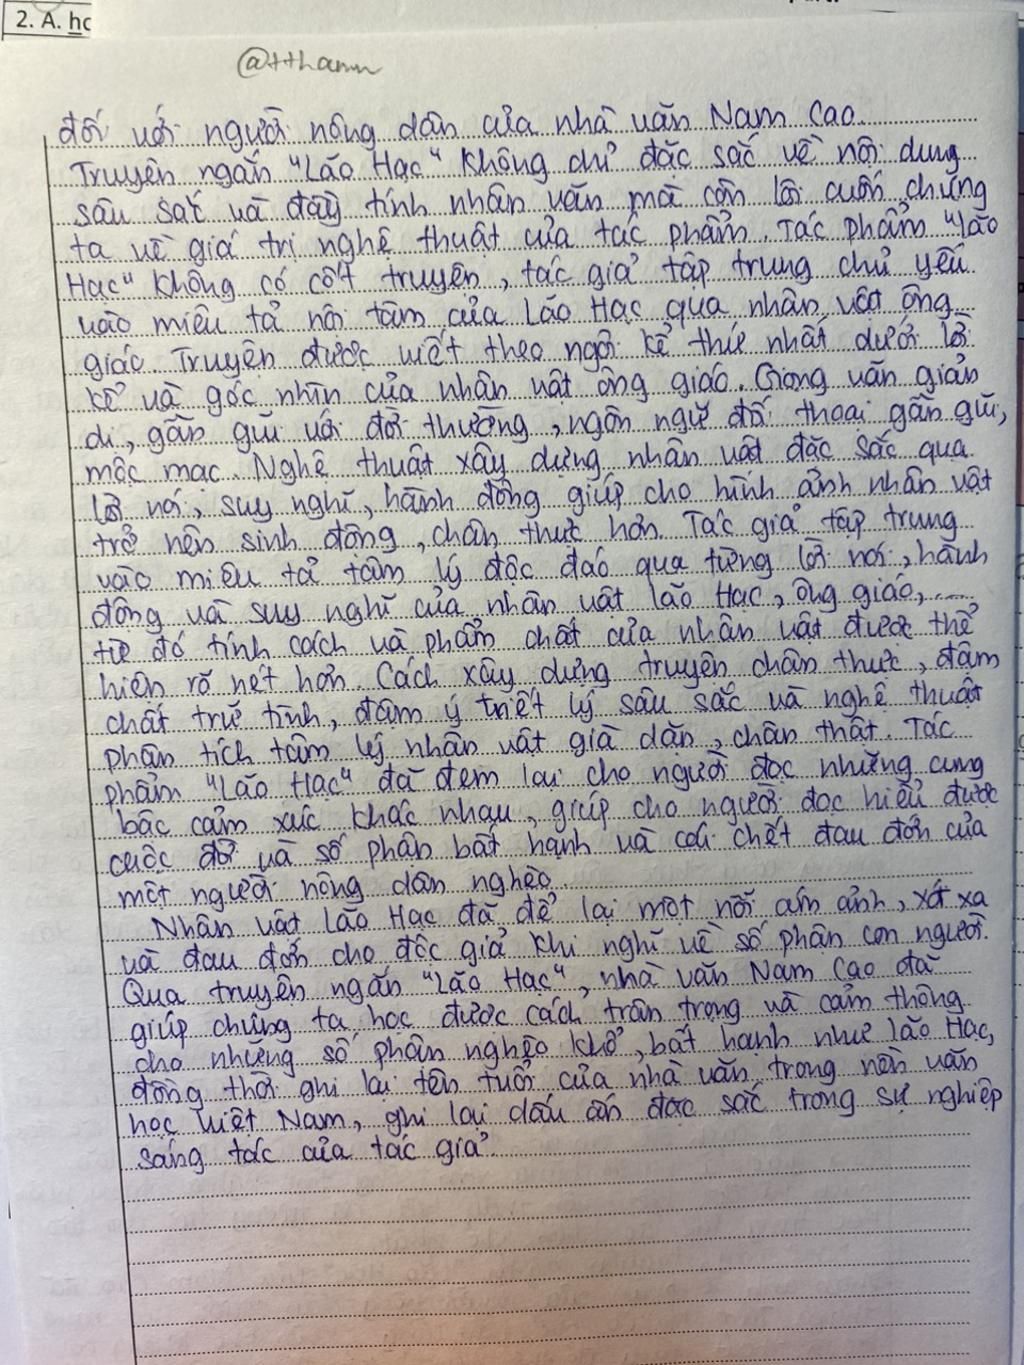 2. A. hc
@tthamn
đối với người nông dân của nhà văn Nam Cao.
Truyện ngắn "Lão Hạc" không chỉ đặc sắc về nội dung
sâu sắc và đầy tính nhân văn mà còn lôi cuốn chúng
ta về giá trị nghệ thuật của tác phẩm. Tác phẩm "Lão
Hạc" không có cốt truyện, tác giả tập trung chủ yếu
vào miêu tả nội tâm của Lão Hạc qua nhân vật ông
giáo. Truyện được viết theo ngôi kể thứ nhất dưới lời
kể và góc nhìn của nhân vật ông giáo. Giọng văn giản
dị, gần gũi với đời thường, ngôn ngữ đối thoại gần gũi,
mộc mạc. Nghệ thuật xây dựng nhân vật đặc sắc qua
lời nói, suy nghĩ, hành động giúp cho hình ảnh nhân vật
trở nên sinh động, chân thực hơn. Tác giả tập trung
vào miêu tả tâm lý độc đáo qua từng lời nói, hành
động và suy nghĩ của nhân vật lão Hạc, ông giáo,.....
từ đó tính cách và phẩm chất của nhân vật được thể
hiện rõ nét hơn. Cách xây dựng truyện chân thực, đậm
chất trữ tình, đậm ý triết lý sâu sắc và nghệ thuật
phân tích tâm lý nhân vật già dặn, chân thật. Tác
phẩm "Lão Hạc" đã đem lại cho người đọc những cung
bậc cảm xúc khác nhau, giúp cho người đọc hiểu được
cuộc đời và số phận bất hạnh và cái chết đau đớn của
một người nông dân nghèo.
Nhân vật lão Hạc đã để lại một nỗi ám ảnh, xót xa
và đau đớn cho độc giả khi nghĩ về số phận con người.
Qua truyện ngắn "Lão Hạc", nhà văn Nam Cao đã
giúp chúng ta học được cách trân trọng và cảm thông
cho những số phận nghèo khổ, bất hạnh như lão Hạc,
đồng thời ghi lại tên tuổi của nhà văn trong nền văn
học Việt Nam, ghi lại dấu ấn đặc sắc trong sự nghiệp
sáng tác của tác giả.